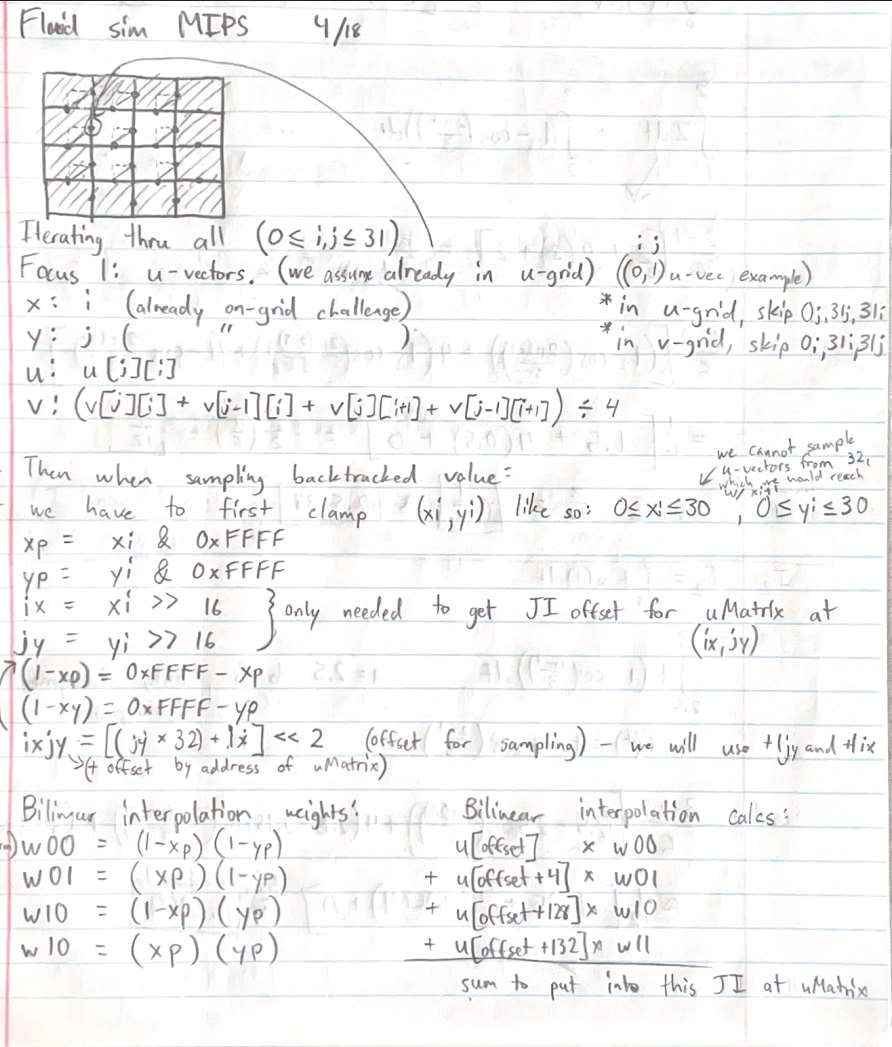 Fluid sim MIPS 4/18
Iterating thru all (0 ≤ i,j ≤ 31)
i j
Focus 1: u-vectors. (we assume already in u-grid) ((0,1) u-vec example)
x: i (already on-grid challenge) * in u-grid, skip 0j, 31j, 31i
y: j ( " ) * in v-grid, skip 0i, 31i, 31j
u: u[j][i]
v: (v[j][i] + v[j-1][i] + v[j][i+1] + v[j-1][i+1]) ÷ 4
we cannot sample
u-vectors from 32,
which we would reach
w/ xi+1
Then when sampling backtracked value:
we have to first clamp (xi, yi) like so: 0 ≤ xi ≤ 30, 0 ≤ yi ≤ 30
xp = xi & 0xFFFF
yp = yi & 0xFFFF
ix = xi >> 16 } only needed to get JI offset for uMatrix at
jy = yi >> 16 (ix, jy)
(1-xp) = 0xFFFF - xp
(1-xy) = 0xFFFF - yp
ixjy = [(jy × 32) + ix] << 2 (offset for sampling) - we will use +1jy and +1ix
(+ offset by address of uMatrix)
Bilinear interpolation weights: Bilinear interpolation calcs:
w00 = (1-xp)(1-yp) u[offset] × w00
w01 = (xp)(1-yp) + u[offset+4] × w01
w10 = (1-xp)(yp) + u[offset+128] × w10
w10 = (xp)(yp) + u[offset+132] × w11
sum to put into this JI at uMatrix